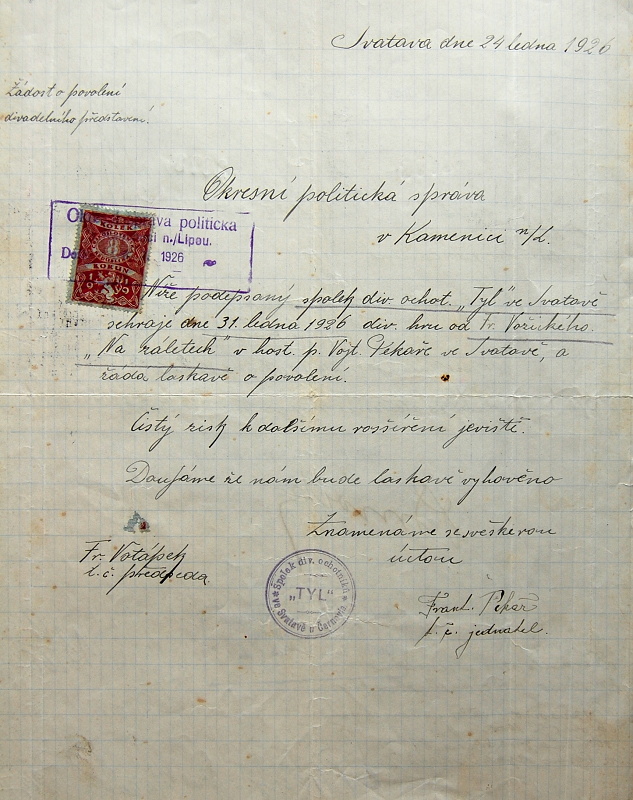 Svatava dne 24 ledna 1926
Žádost o povolení
divadelního představení.
Okresní politická správa
v Kamenici n/L.
Ok správa politická
i n./Lipou.
1926
KOLEK
8
KORUN
Níže podepsaný spolek div. ochot. „Tyl" ve Svatavě
sehraje dne 31. ledna 1926 div. hru od Fr. Vožického.
„Na záletech" v host. p. Vojt. Pékaře ve Svatavě, a
žádá laskavě o povolení.
Čistý zisk k dalšímu rosšíření jeviště.
Doufáme že nám bude laskavě vyhověno
Znamenáme se veškerou
úctou
Fr. Votápek
t. č. předseda.
Spolek div. ochotníků
„TYL"
ve Svatavě u Černovic
Frant. Pekař
t. č. jednatel.